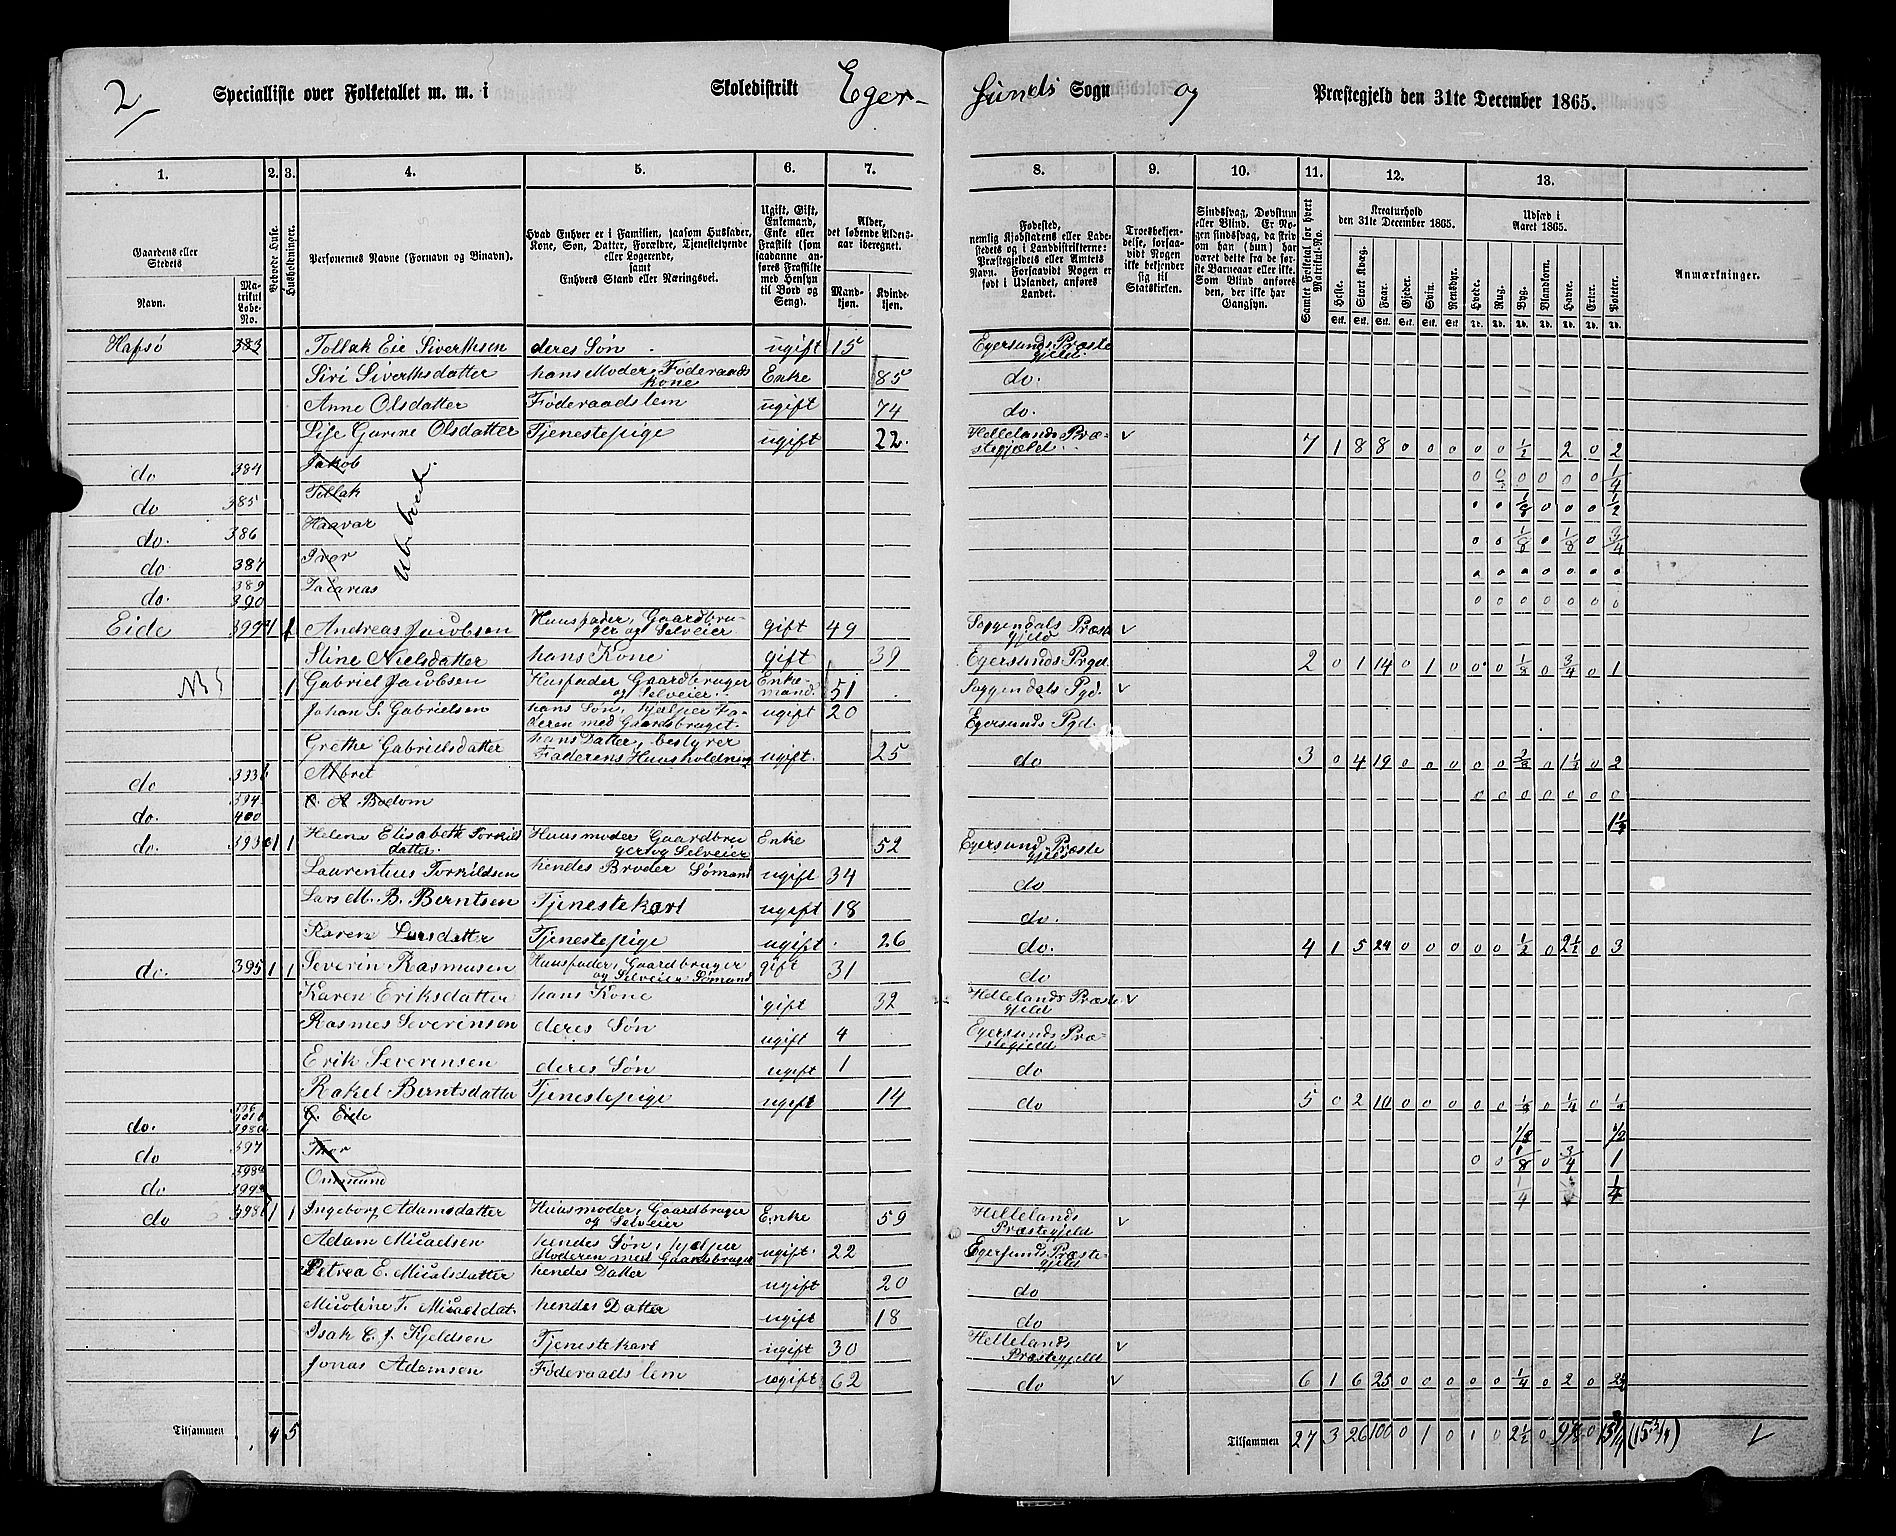 2
Specialliste over Folketallet m. m. i Skoledistrikt Eger-
sunds Sogn og Præstegjeld den 31te December 1865.
1. 2. 3. 4. 5. 6. 7. 8. 9. 10. 11. 12. 13.
Gaardens eller Stedets
Navn.
Matrikul Løbe-No.
Beboede Huse.
Husholdninger.
Personernes Navne (Fornavn og Binavn).
Hvad Enhver er i Familien, saasom Husfader, Kone, Søn, Datter, Forældre, Tjenestetyende eller Logerende, samt Enhvers Stand eller Næringsvei.
Ugift, Gift, Enkemand, Enke eller Fraskilt (som saadanne anføres Fraskilte med Hensyn til Bord og Seng).
Alder, det løbende Alders-aar iberegnet.
Mandkjøn. Kvindekjøn.
Fødested, nemlig Kjøbstadens eller Ladestedets og i Landdistrikterne: Præstegjeldets eller Amtets Navn. Forsaavidt Nogen er født i Udlandet, anføres Landet.
Troesbekjendelse, forsaavidt Nogen ikke bekjender sig til Statskirken.
Sindssvag, Døvstum eller Blind. Er Nogen sindssvag, da skrives om han (hun) har været dette fra de første Barneaar eller ikke. Som Blind anføres den, der ikke har Gangsyn.
Samlet Folketal for hvert Matrikul-No.
Kreaturhold den 31te December 1865.
Heste. Stort Kvæg. Faar. Gjeder. Svin. Rensdyr.
Udsæd i Aaret 1865.
Hvede. Rug. Byg. Blandkorn. Havre. Erter. Poteter.
Anmærkninger.
Hafsö 383 Tollak Eie Siverthsen deres Søn ugift 15 Egersunds Præstegjeld.
Siri Siverthsdatter hans Moder, Føderaadskone Enke 85 do.
Anne Olsdatter Føderaadslem ugift 74 do.
Lise Gurine Olsdatter Tjenestepige ugift 22 Hellelands Præstegjeld ✓ 7 1 8 8 0 0 0 0 0 1/2 2 0 2
do 384 Jakob 0 0 0 0 0 0 1/4
do 385 Tollak 0 0 1/8 0 0 0 1/2
do. 386 Haavar 0 0 1/8 0 1/8 0 3/4
do 387 Iver 0 0 0 0 0 0 0
do. 389 390 Zacarias 0 0 0 0 0 0 0
Ubeboet.
Eide 399 1 1 Andreas Jacobsen Huusfader, Gaardbruger og Selveier gift 49 Soggendals Præstegjeld ✓
Stine Nielsdatter hans Kone gift 39 Egersunds Prgd. 2 0 1 14 0 1 0 0 0 1/8 0 3/4 0 1
No 5 1 Gabriel Jacobsen Husfader Gaardbruger og Selveier Enkemand 51 Soggendals Pgd. ✓
Johan S. Gabrielsen hans Søn, hjelper Faderen med Gaardsbruget ugift 20 Egersunds Pgd.
Grethe Gabrielsdatter hans Datter, bestyrer Faderens Huusholdning ugift. 25 do 3 0 4 19 0 0 0 0 0 3/8 0 1 1/2 0 2
do 393b Albret 0 0 0 0 0 0 0
do. 394 400 O. A Bodom 1 1/2
do. 393 1 1 Helene Elisabeth Torkildsdatter Huusmoder Gaardbruger og Selveier Enke 52 Egersund Præstegjeld
Laurentius Torkildsen hendes Broder Sømand ugift 34 do
Lars M. B. Berntsen Tjenestekarl ugift 18 do.
Karen Larsdatter Tjenestepige ugift 26 do. 4 1 5 24 0 0 0 0 0 1/2 0 2 1/2 0 3
do. 395 1 1 Severin Rasmusen Huusfader, Gaardbruger og Selveier Sømand gift 31 do
Karen Eriksdatter hans Kone gift 32 Hellelands Præstegjeld ✓
Rasmes Severinsen deres Søn ugift 4 Egersunds Præstegjeld
Erik Severinsen deres Søn ugift 1 do
Rakel Berntsdatter Tjenestepige ugift 14 do 5 0 2 10 0 0 0 0 0 1/8 0 1/4 0 1/2
do. 396 398a Eide 1/8 1/2
do 397 Thor 0 0 1/8 0 3/4 1
do Ommund 1/4 1/4
do 398 1 1 Ingeborg Adamsdatter Huusmoder, Gaardbruger og Selveier Enke 59 Hellelands Præstegjeld ✓
Adam Micaelsen hendes Søn, hjelper Moderen med Gaardsbruget ugift. 22 Egersunds Præstegjeld
Petrea E. Micalsdatter hendes Datter ugift 20 do
Micoline T. Micaeldat. hendes Datter ugift 18 do
Isak C. J. Kjeldsen Tjenestekarl ugift 30 Hellelands Præstegjeld ✓
Jonas Adamsen Føderaadslem ugift 62 do ✓ 6 1 6 25 0 0 0 0 0 1/4 0 2 0
Tilsammen 4 5 Tilsammen 27 3 26 100 0 1 0 0 2 1/2 0 0 (15 3/4) 1